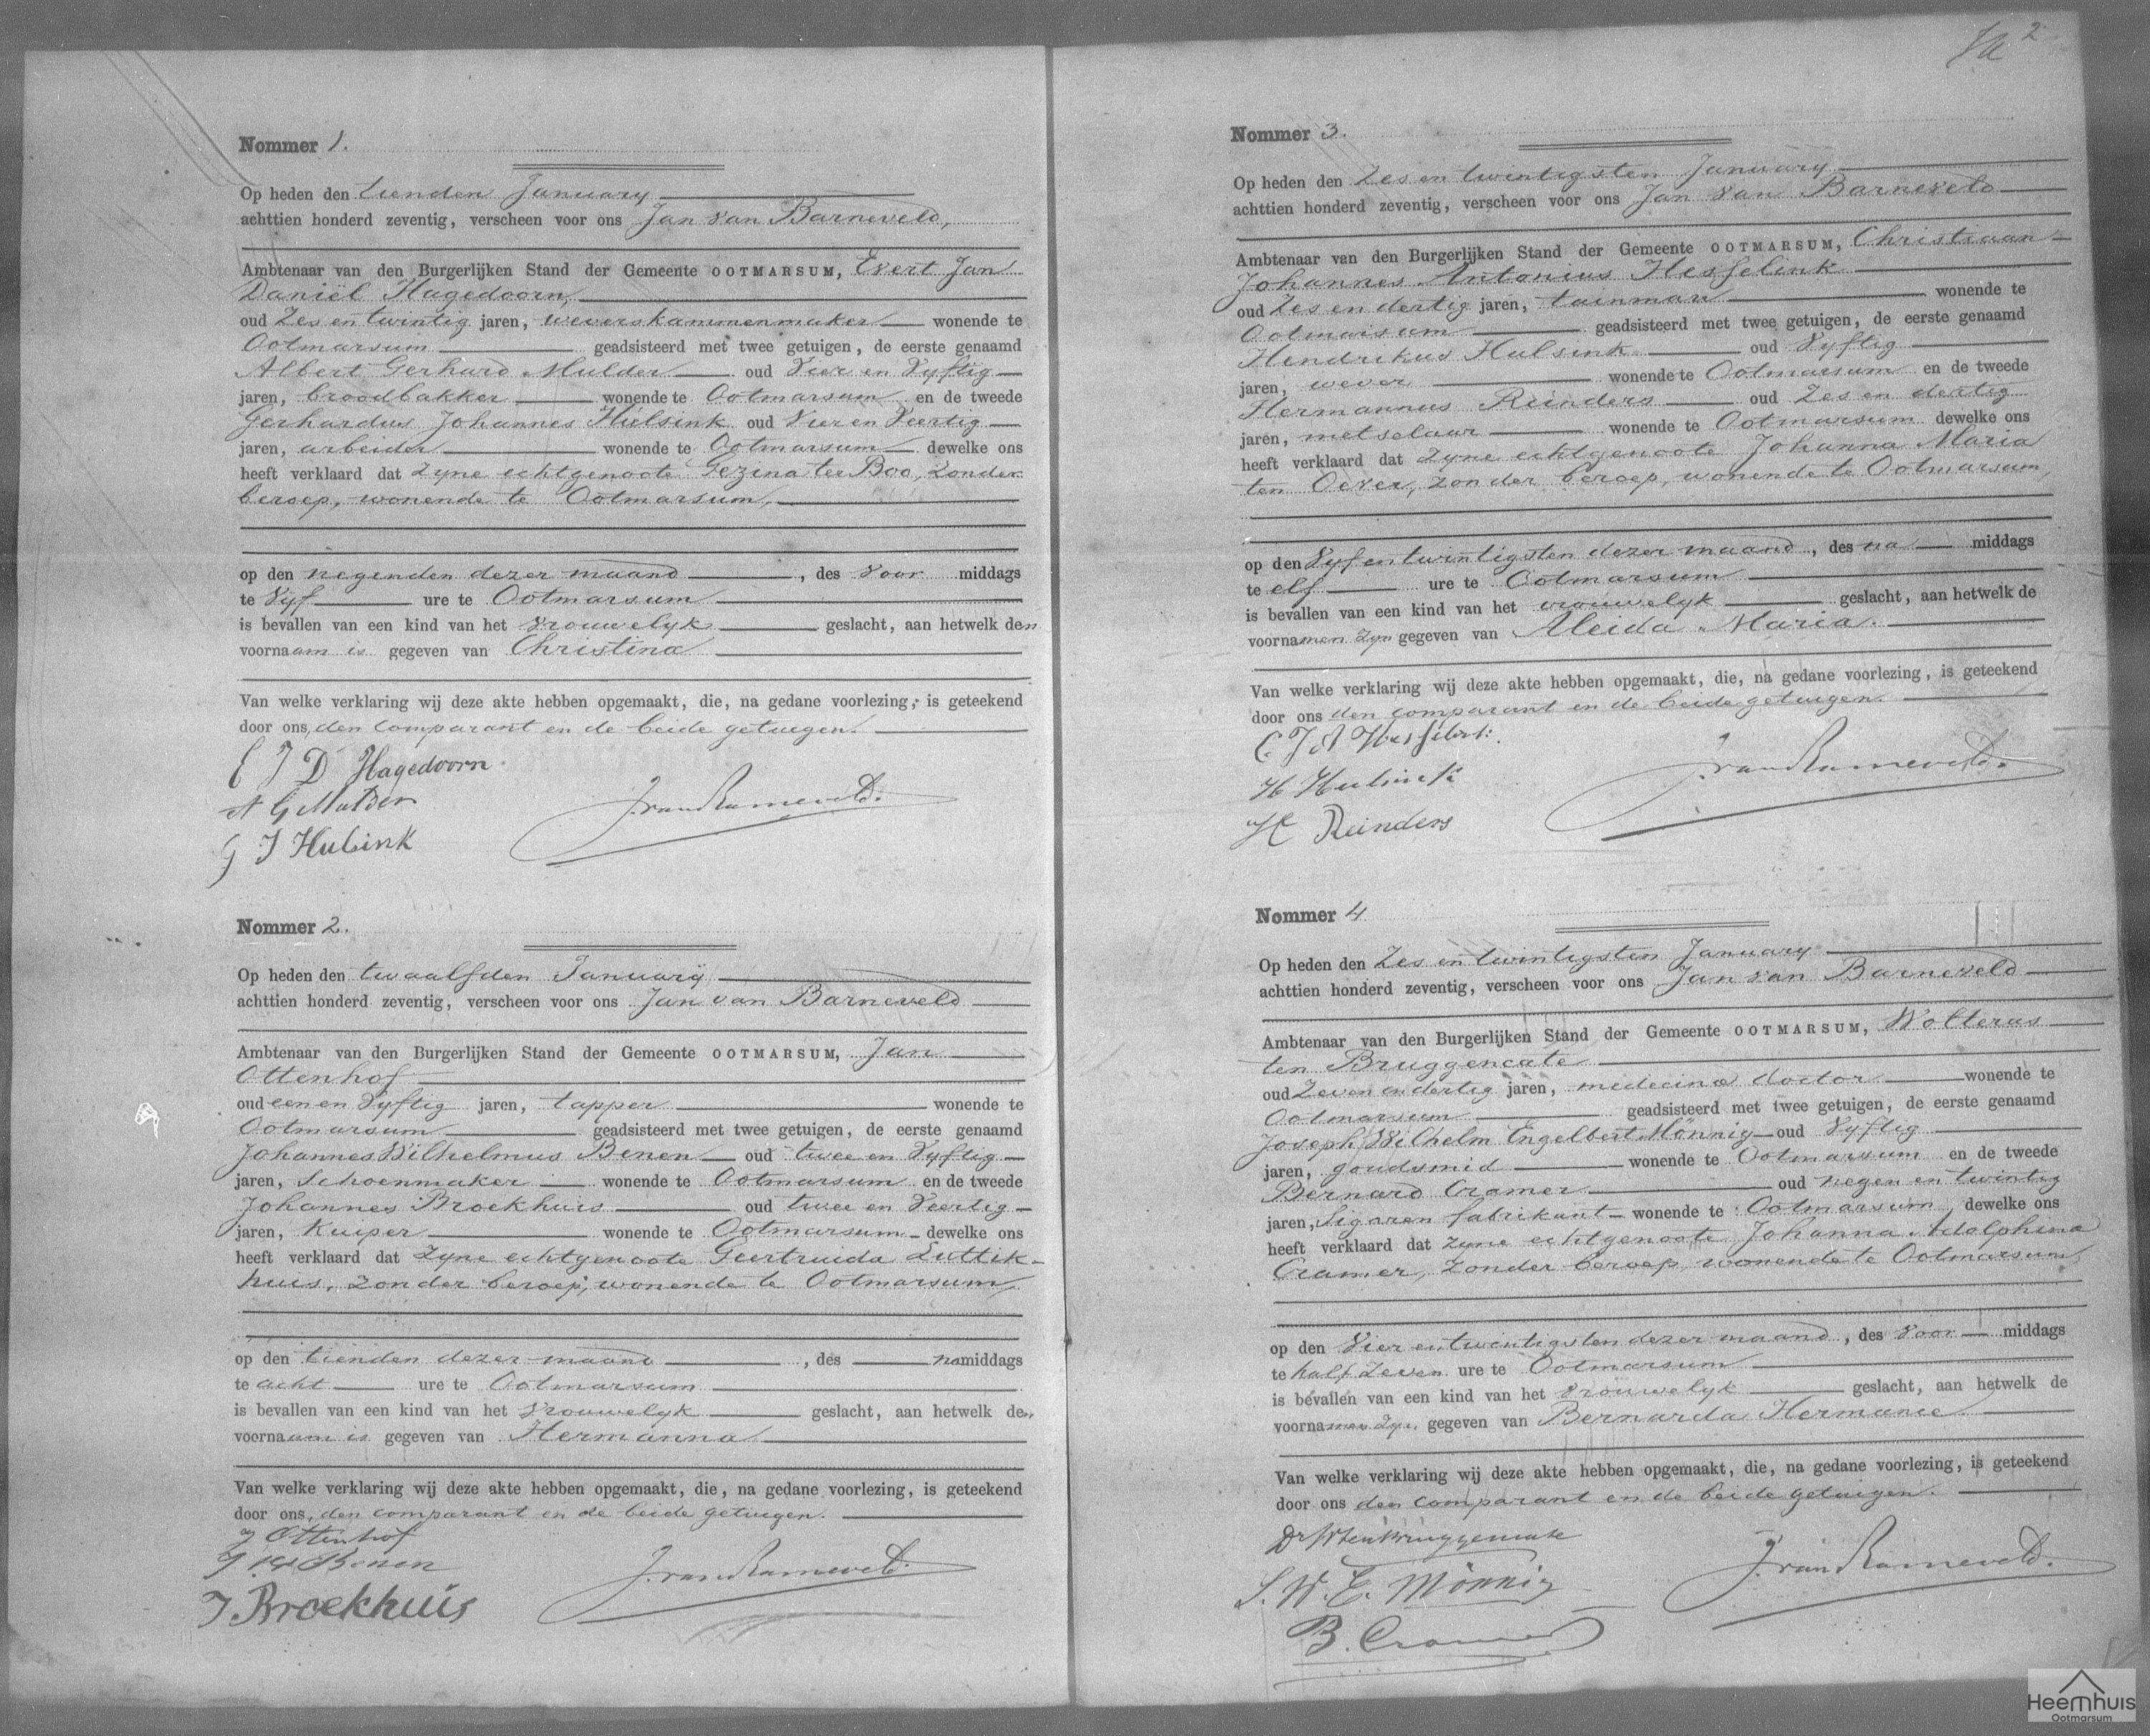 Nommer 1.
Op heden den tienden January
achttien honderd zeventig, verscheen voor ons Jan van Barneveld,
Ambtenaar van den Burgerlijken Stand der Gemeente OOTMARSUM, Evert Jan
Daniël Hagedoorn,
oud Zes en twintig jaren, weverskammenmaker wonende te
Ootmarsum geadsisteerd met twee getuigen, de eerste genaamd
Albert Gerhard Mulder oud Vier en Vyftig
jaren, broodbakker wonende te Ootmarsum en de tweede
Gerhardus Johannes Hulsink oud Vier en Veertig
jaren, arbeider wonende te Ootmarsum dewelke ons
heeft verklaard dat Zyne echtgenoote Gezina ter Boo, Zonder
beroep, wonende te Ootmarsum,
op den negenden dezer maand, des Voor middags
te Vyf ure te Ootmarsum
is bevallen van een kind van het Vrouwelyk geslacht, aan hetwelk den
voornaam is gegeven van Christina
Van welke verklaring wij deze akte hebben opgemaakt, die, na gedane voorlezing, is geteekend
door ons, den comparant en de beide getuigen.
E J D Hagedoorn
A G Mulder
J. van Barneveld.
G J Hulsink
Nommer 2.
Op heden den twaalfden January
achttien honderd zeventig, verscheen voor ons Jan van Barneveld
Ambtenaar van den Burgerlijken Stand der Gemeente OOTMARSUM, Jan
Ottenhof
oud een en Vyftig jaren, tapper wonende te
Ootmarsum geadsisteerd met twee getuigen, de eerste genaamd
Johannes Wilhelmus Benen oud twee en Vyftig
jaren, Schoenmaker wonende te Ootmarsum en de tweede
Johannes Broekhuis oud twee en Veertig
jaren, Kuiper wonende te Ootmarsum dewelke ons
heeft verklaard dat Zyne echtgenoote Geertruida Luttik-
huis, Zonder beroep, wonende te Ootmarsum,
op den tienden dezer maand, des namiddags
te acht ure te Ootmarsum
is bevallen van een kind van het Vrouwelyk geslacht, aan hetwelk den
voornaam is gegeven van Hermanna
Van welke verklaring wij deze akte hebben opgemaakt, die, na gedane voorlezing, is geteekend
door ons, den comparant en de beide getuigen.
J Ottenhof
J W Benen
J. van Barneveld.
J. Broekhuis
2
Nommer 3.
Op heden den Zes en twintigsten January
achttien honderd zeventig, verscheen voor ons Jan van Barneveld
Ambtenaar van den Burgerlijken Stand der Gemeente OOTMARSUM, Christiaan
Johannes Antonius Hesselink
oud Zes en dertig jaren, tuinman wonende te
Ootmarsum geadsisteerd met twee getuigen, de eerste genaamd
Hendrikus Hulsink oud Vyftig
jaren, wever wonende te Ootmarsum en de tweede
Hermannus Reinders oud Zes en dertig
jaren, metselaar wonende te Ootmarsum dewelke ons
heeft verklaard dat Zyne echtgenoote Johanna Maria
ten Oever, zonder beroep, wonende te Ootmarsum,
op den Vyf en twintigsten dezer maand, des na middags
te elf ure te Ootmarsum
is bevallen van een kind van het vrouwelyk geslacht, aan hetwelk de
voornamen Zyn gegeven van Aleida Maria.
Van welke verklaring wij deze akte hebben opgemaakt, die, na gedane voorlezing, is geteekend
door ons den comparant en de beide getuigen.
C. J A Hesselink
H Hulsink
J. van Barneveld.
H Reinders
Nommer 4
Op heden den Zes en twintigsten January
achttien honderd zeventig, verscheen voor ons Jan van Barneveld
Ambtenaar van den Burgerlijken Stand der Gemeente OOTMARSUM, Wolterus
ten Bruggencate
oud Zeven en dertig jaren, medecinæ doctor wonende te
Ootmarsum geadsisteerd met twee getuigen, de eerste genaamd
Joseph Wilhelm Engelbert Mönnig oud Vyftig
jaren, goudsmid wonende te Ootmarsum en de tweede
Bernard Cramer oud negen en twintig
jaren, Sigaren fabrikant wonende te Ootmarsum, dewelke ons
heeft verklaard dat zyne echtgenoote Johanna Adolphina
Cramer, Zonder beroep, wonende te Ootmarsum,
op den Vier en twintigsten dezer maand, des Voor middags
te half Zeven ure te Ootmarsum
is bevallen van een kind van het Vrouwelyk geslacht, aan hetwelk de
voornamen Zyn gegeven van Bernarda Hermance
Van welke verklaring wij deze akte hebben opgemaakt, die, na gedane voorlezing, is geteekend
door ons den comparant en de beide getuigen.
Dr W ten Bruggencate
J. van Barneveld.
J. W. E. Mönnig
B. Cramer
Heemhuis
Ootmarsum